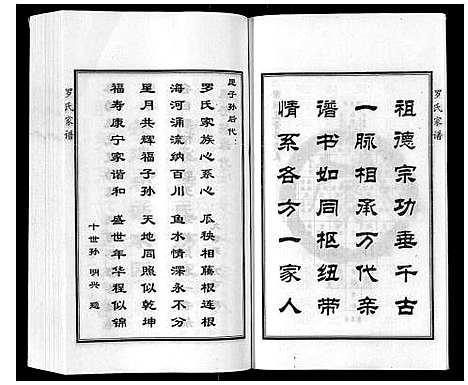 祖德宗功垂千古
一脉相承万代亲
谱书如同枢纽带
情系各方一家人
罗氏家谱
是子孙后代：
罗氏家族心系心 瓜秧相藤根连根
海河涌流纳百川 鱼水情深永不分
星月共辉福子孙 天地同照似乾坤
福寿康宁家谐和 盛世年华程似锦
十世孙 明兴
罗氏家谱